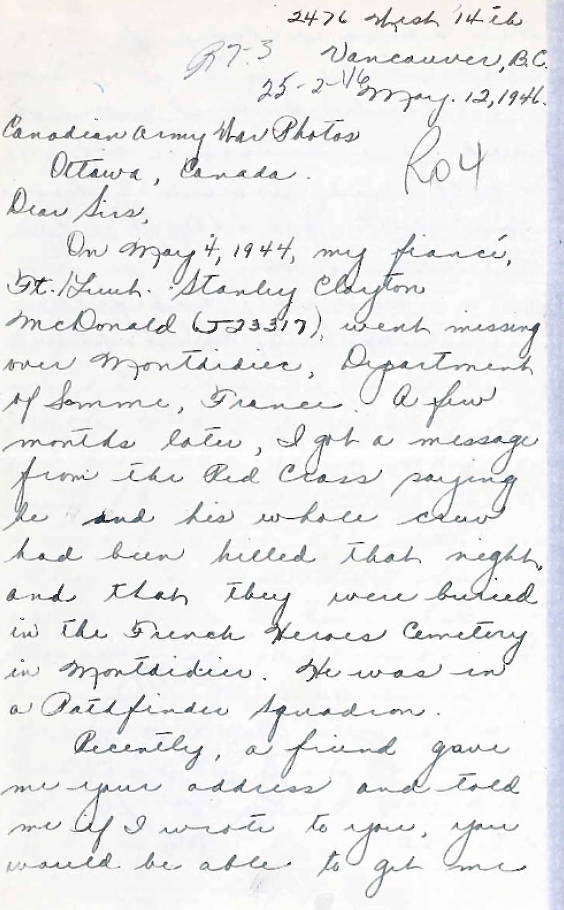 2476 West 14th
R7-3 Vancouver, B.C.
25-2-1/6 May. 12, 1946.
Canadian Army War Photos
Ottawa, Canada.
Ro4
Dear Sirs,
On May 4, 1944, my fiancé,
Ft./Lieut. Stanley Clayton
McDonald (J23317), went missing
over Montdidier, Department
of Somme, France. A few
months later, I got a message
from the Red Cross saying
he and his whole crew
had been killed that night,
and that they were buried
in the French Heroes Cemetery
in Montdidier. He was in
a Pathfinder Squadron.
Recently, a friend gave
me your address and told
me if I wrote to you, you
would be able to get me